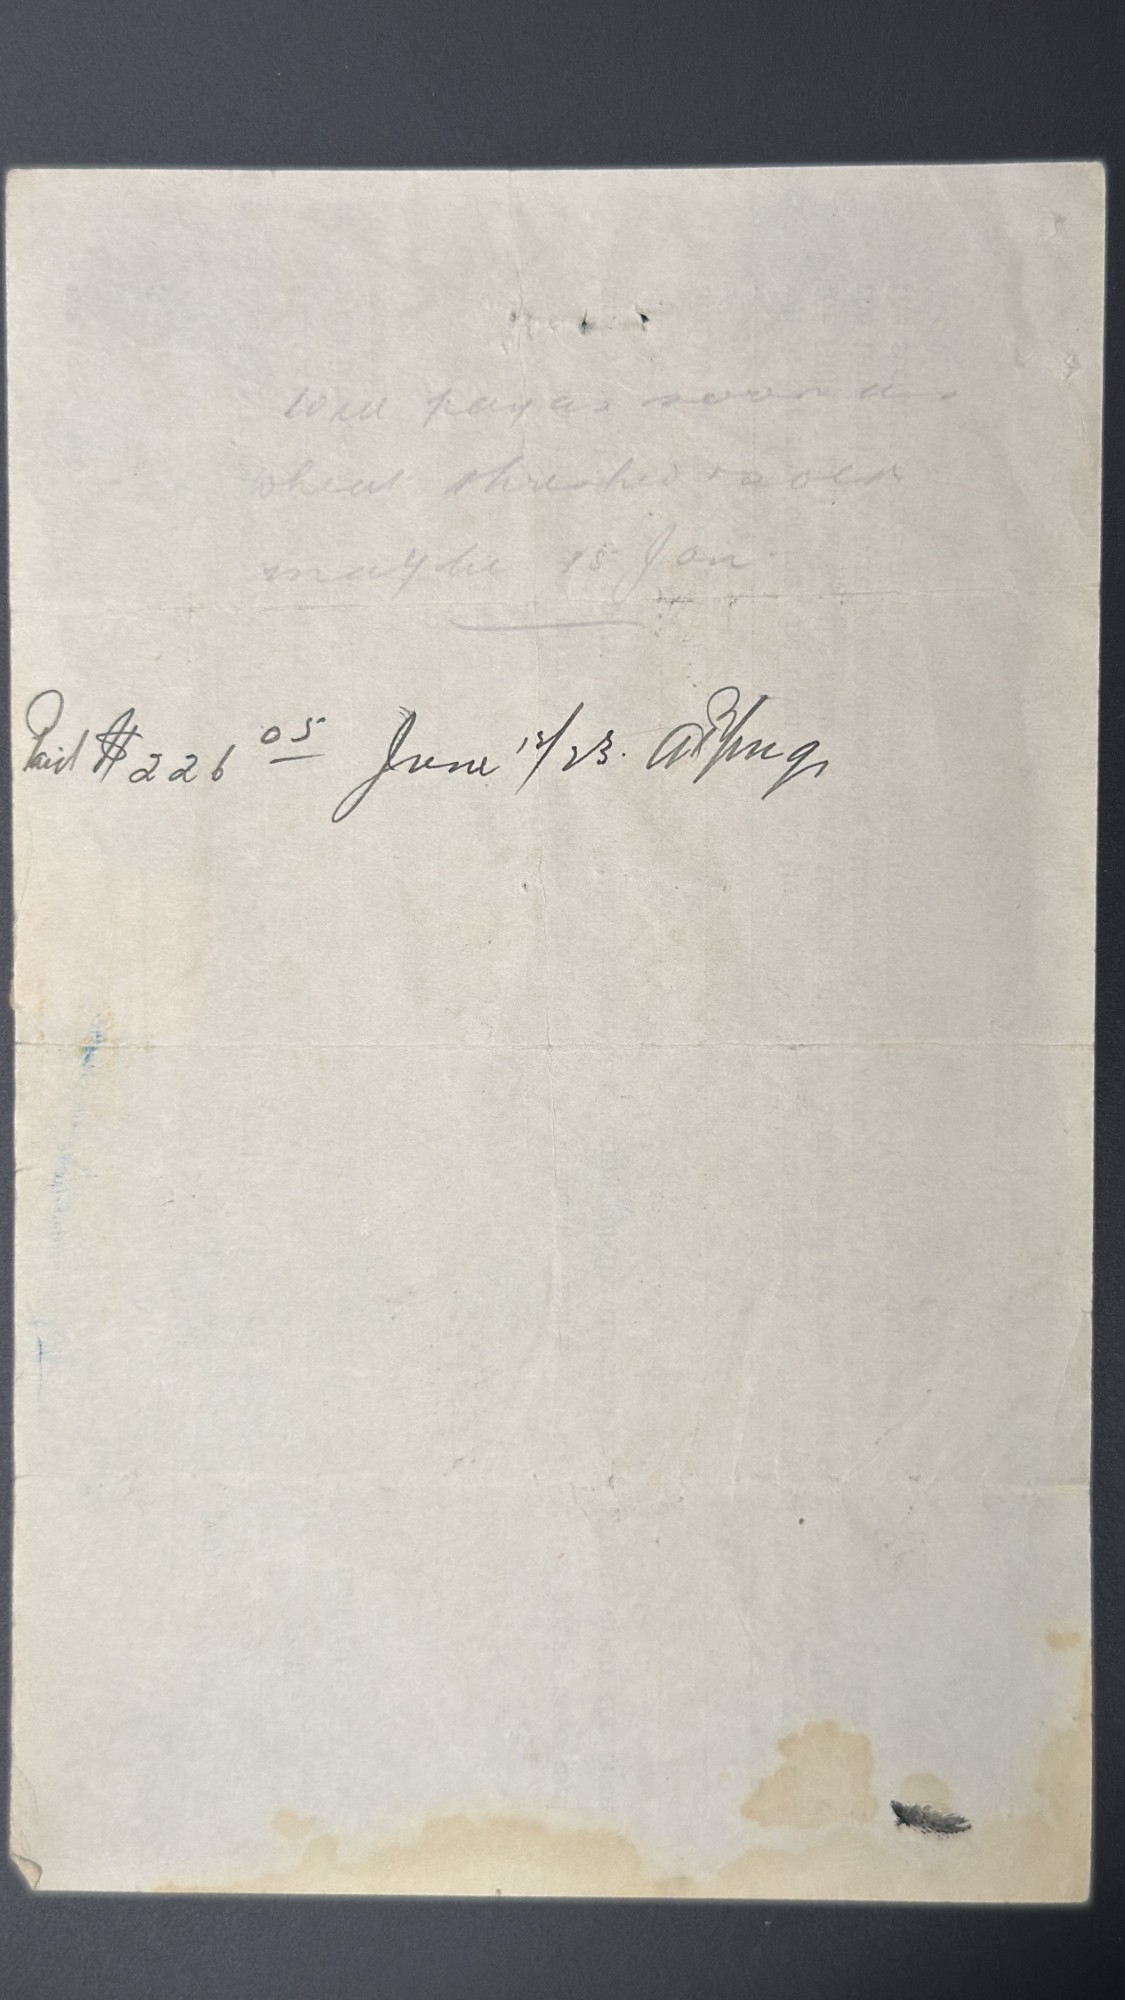 Will pay as soon as
wheat threshed & sold
maybe 15 Jan.
Paid $226 05 June 12/23.